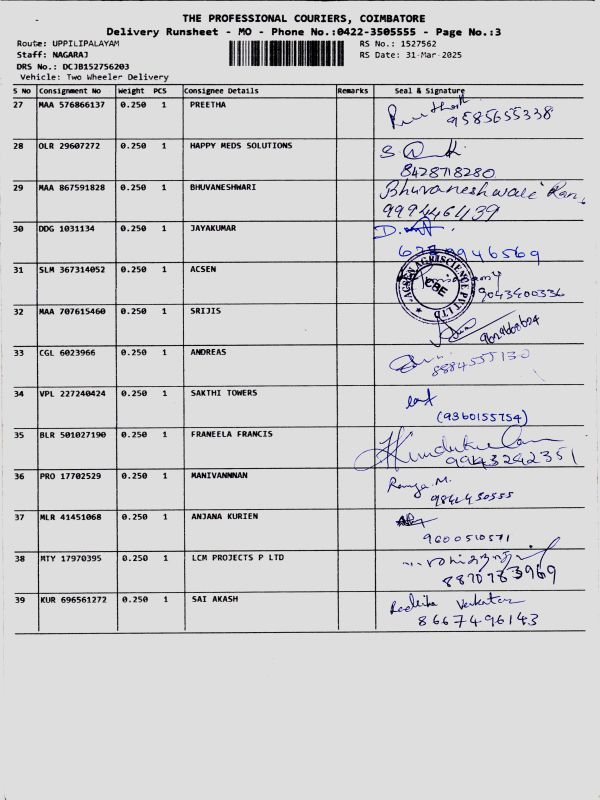 THE PROFESSIONAL COURIERS, COIMBATORE
Delivery Runsheet - MO - Phone No.:0422-3505555 - Page No.:3
Route: UPPILIPALAYAM
RS No.: 1527562
Staff: NAGARAJ
RS Date: 31-Mar-2025
DRS No.: DCJB152756203
Vehicle: Two Wheeler Delivery
S No Consignment No Weight PCS Consignee Details Remarks Seal & Signature
27 MAA 576866137 0.250 1 PREETHA
9585655338
28 OLR 29607272 0.250 1 HAPPY MEDS SOLUTIONS
8428718280
29 MAA 867591828 0.250 1 BHUVANESHWARI Bhuvaneshwari
9994461439
30 DDG 1031134 0.250 1 JAYAKUMAR
31 SLM 367314052 0.250 1 ACSEN
ACSEN AGRISCIENCE PVT LTD
CBE
9043400336
32 MAA 707615460 0.250 1 SRIJIS
33 CGL 6023966 0.250 1 ANDREAS
8884555130
34 VPL 227240424 0.250 1 SAKTHI TOWERS
(9360155754)
35 BLR 501027190 0.250 1 FRANEELA FRANCIS
9943242351
36 PRO 17702529 0.250 1 MANIVANNNAN Ramya M.
9842450555
37 MLR 41451068 0.250 1 ANJANA KURIEN
9600510571
38 MTY 17970395 0.250 1 LCM PROJECTS P LTD
8870783969
39 KUR 696561272 0.250 1 SAI AKASH Radhika Venkatar
8667496143